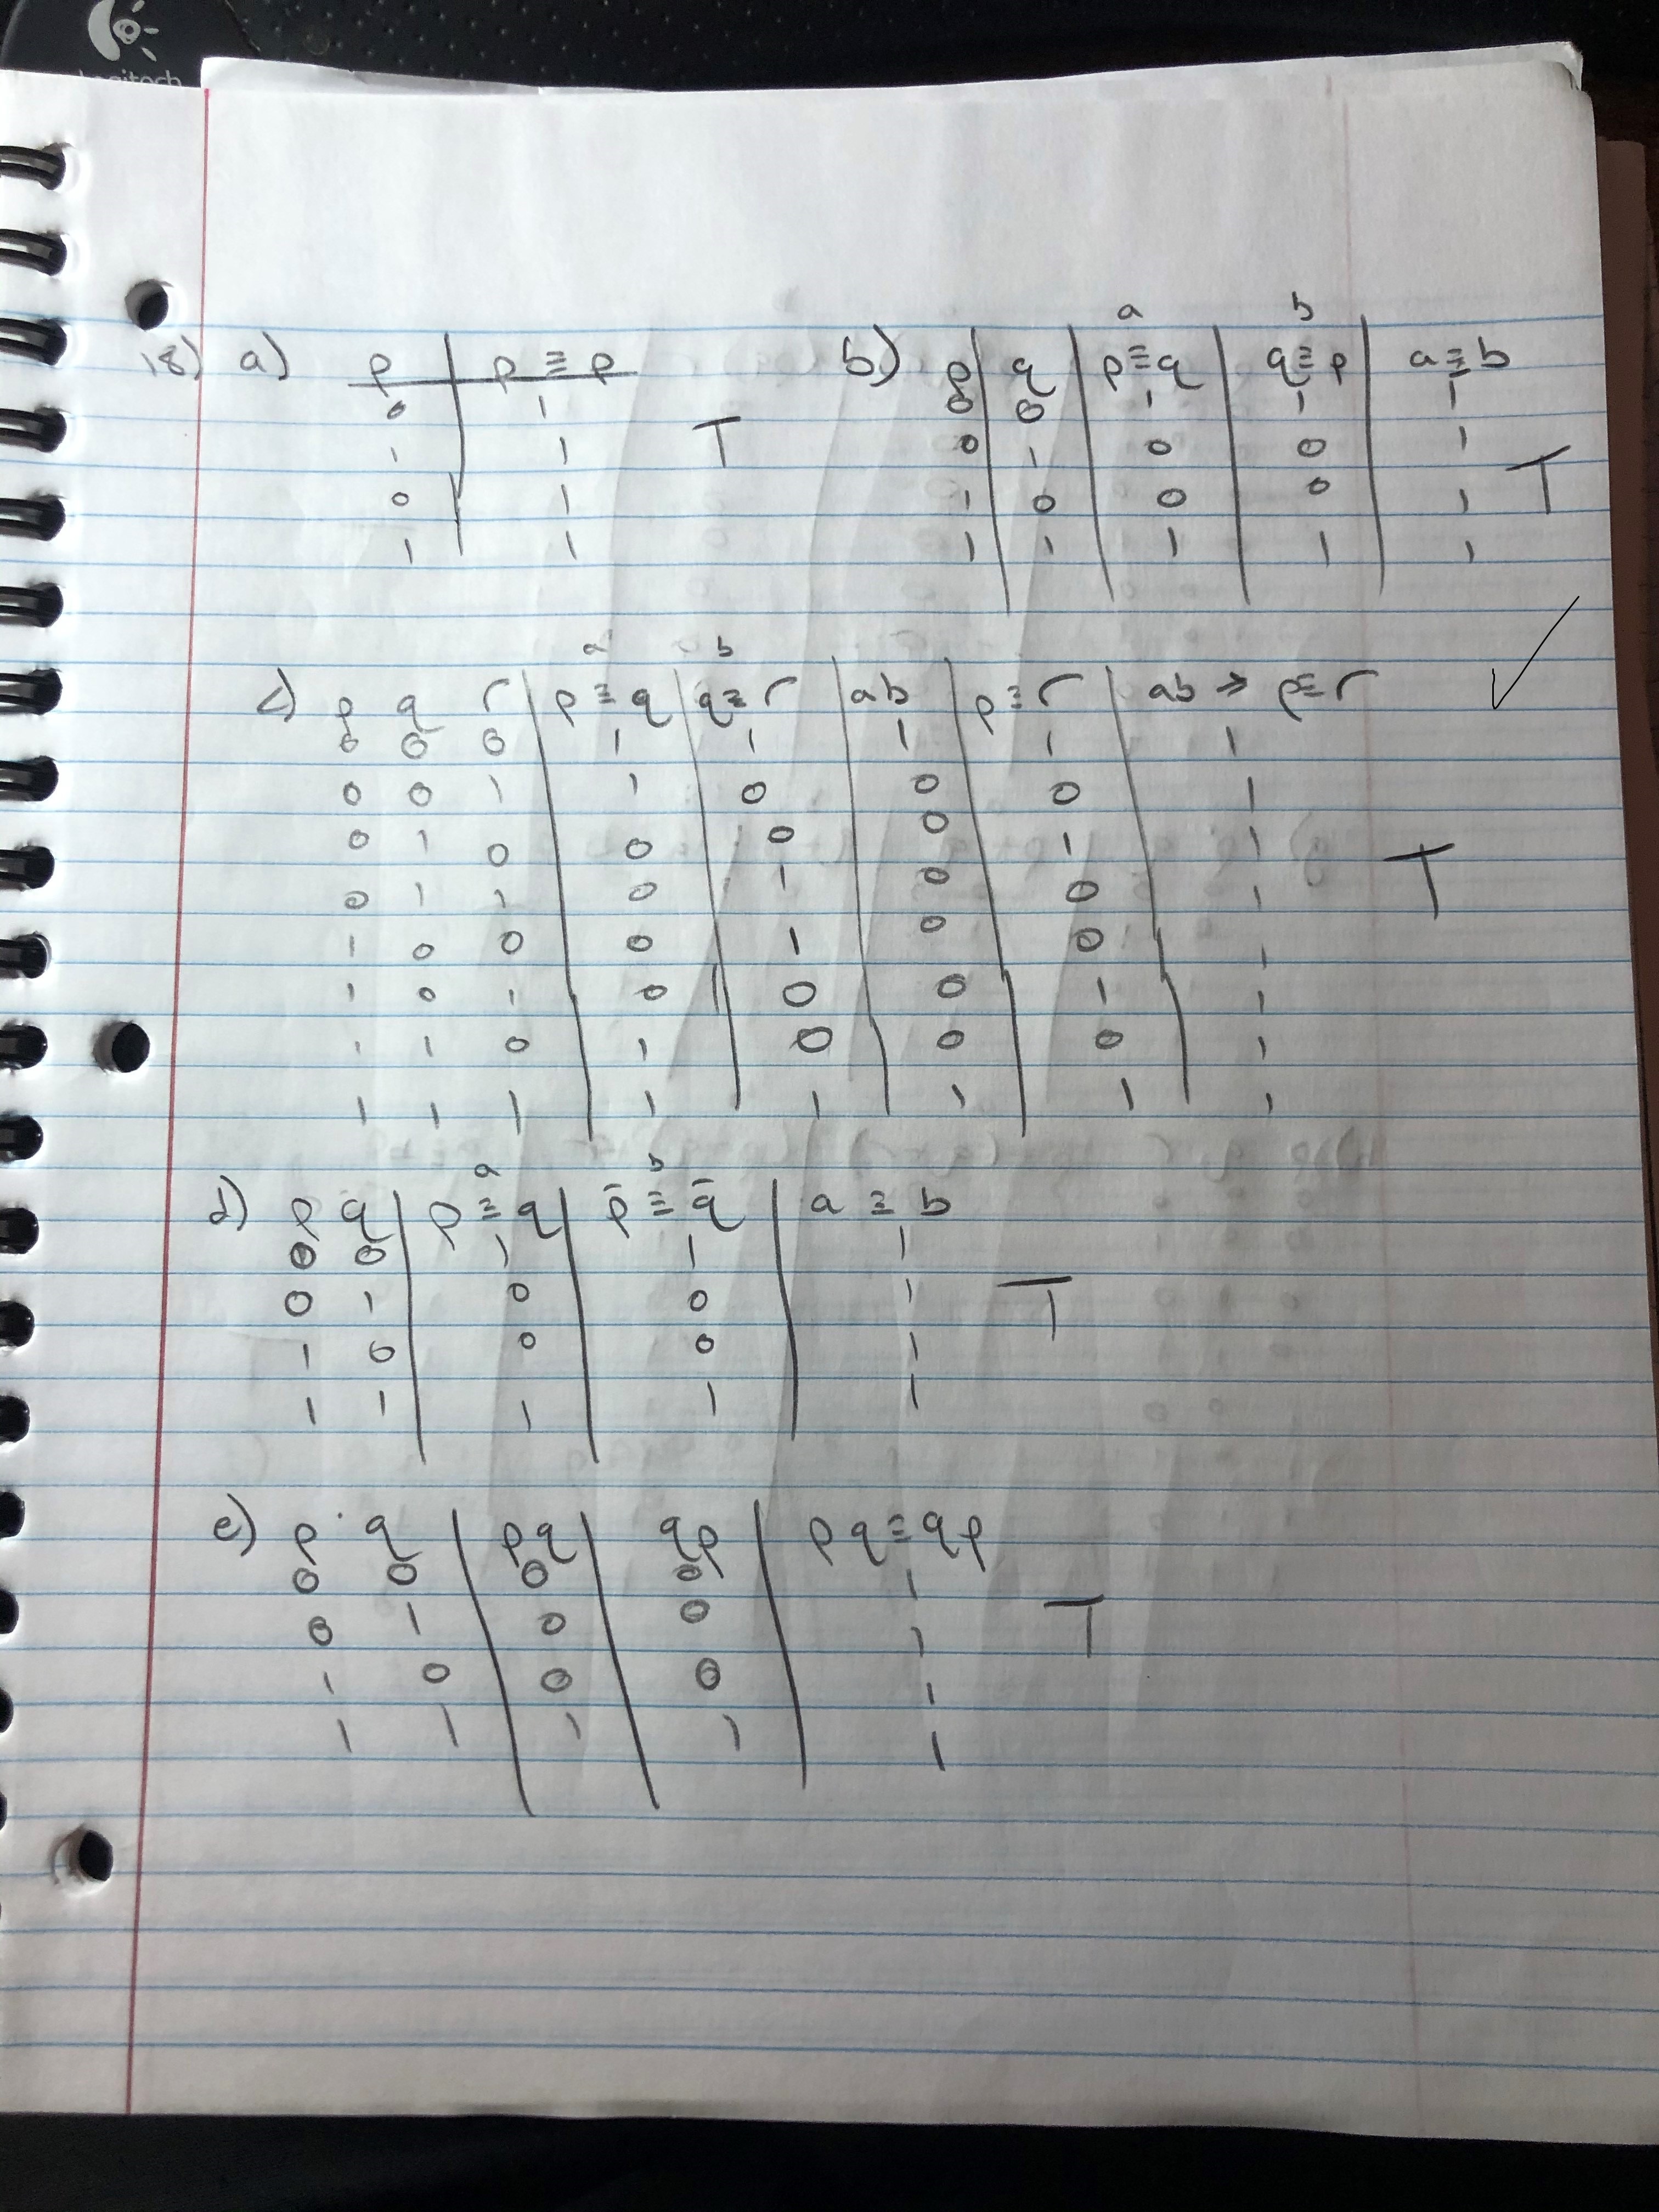 Logitech
18) a) p | p ≡ p
0 | 1
1 | 1
0 | 1
1 | 1
T
a b
b) p | q | p≡q | q≡p | a≡b
0 | 0 | 1 | 1 | 1
0 | 1 | 0 | 0 | 1
1 | 0 | 0 | 0 | 1
1 | 1 | 1 | 1 | 1
T
a b
c) p q r | p≡q | q≡r | ab | p≡r | ab → p≡r
0 0 0 | 1 | 1 | 1 | 1 | 1
0 0 1 | 1 | 0 | 0 | 0 | 1
0 1 0 | 0 | 0 | 0 | 1 | 1
0 1 1 | 0 | 1 | 0 | 0 | 1
1 0 0 | 0 | 1 | 0 | 0 | 1
1 0 1 | 0 | 0 | 0 | 1 | 1
1 1 0 | 1 | 0 | 0 | 0 | 1
1 1 1 | 1 | 1 | 1 | 1 | 1
T
a b
d) p q | p≡q | p̄≡q̄ | a ≡ b
0 0 | 1 | 1 | 1
0 1 | 0 | 0 | 1
1 0 | 0 | 0 | 1
1 1 | 1 | 1 | 1
T
e) p q | pq | qp | pq≡qp
0 0 | 0 | 0 | 1
0 1 | 0 | 0 | 1
1 0 | 0 | 0 | 1
1 1 | 1 | 1 | 1
T